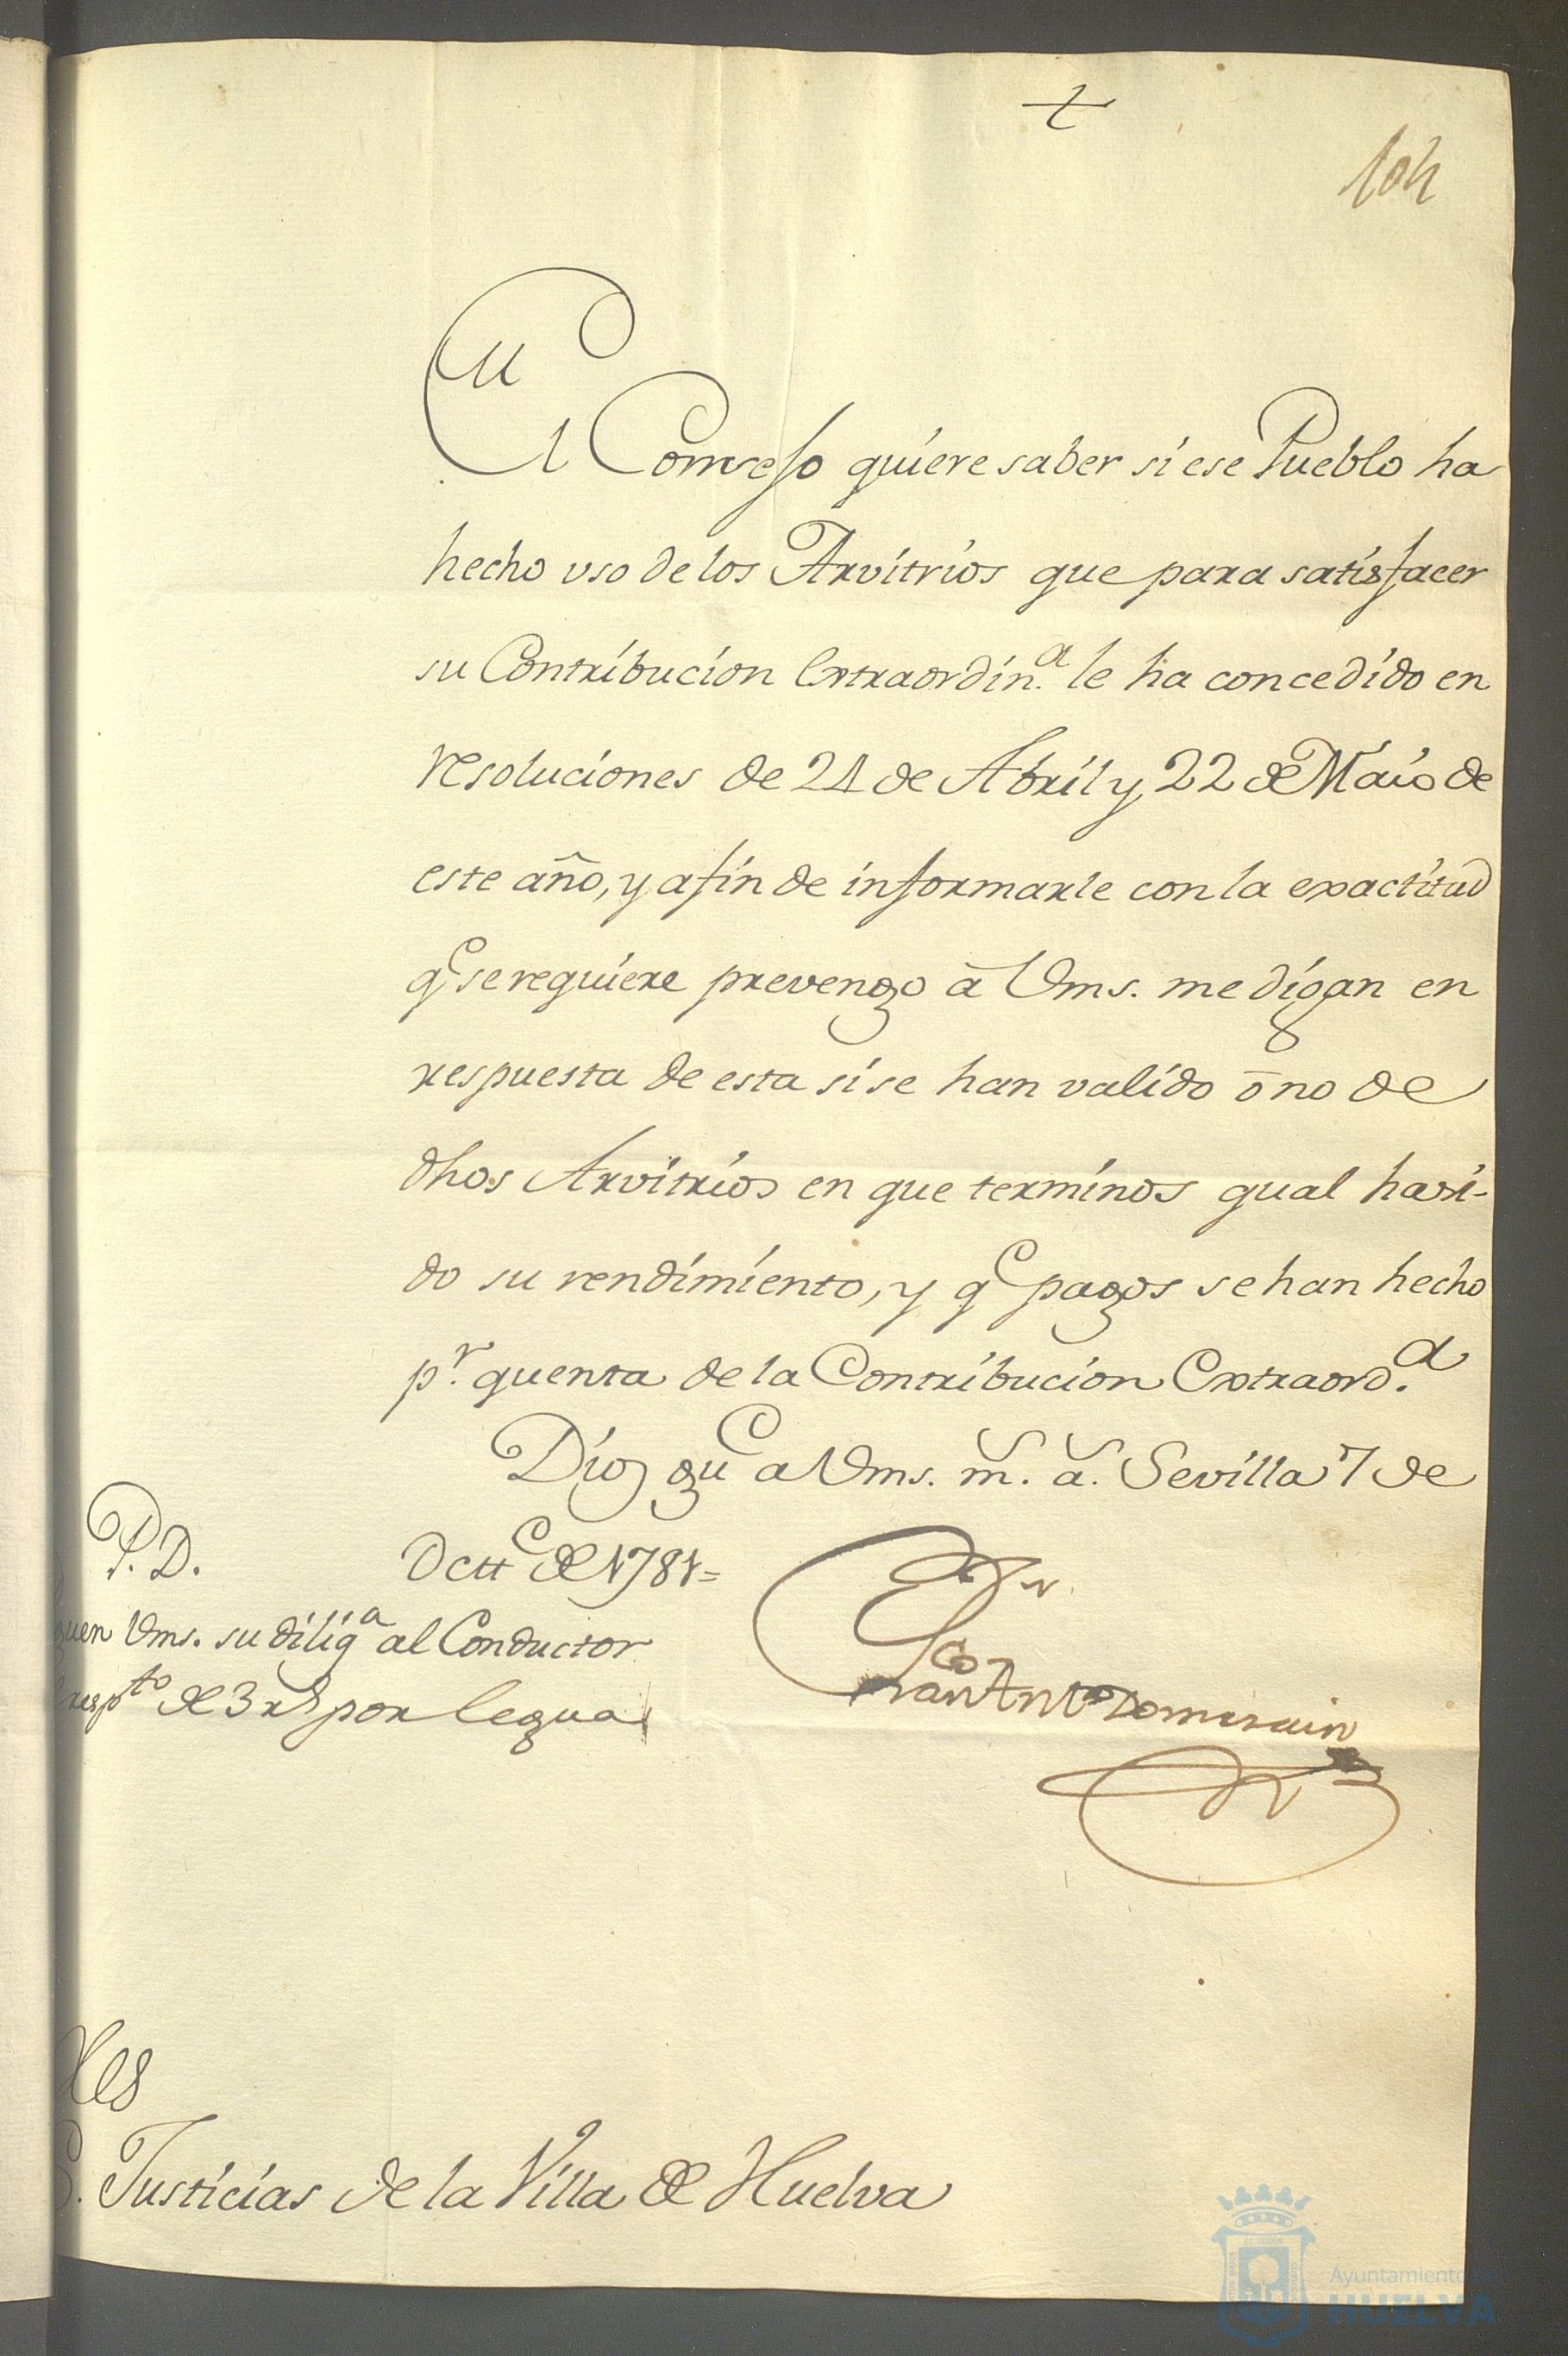 104
El Consejo quiere saber si ese Pueblo ha
hecho uso de los Arvitrios que para satisfacer
su Contribucion Extraordin.ª le ha concedido en
resoluciones de 24 de Abril y 22 de Maio de
este año, y afin de informarle con la exactitud
qe se requiere prevengo â Vms. me digan en
respuesta de esta si se han valido ō no de
dhos Arvitrios en que terminos qual ha si-
do su rendimiento, y qe pagos se han hecho
pr. quenta de la Contribucion Extraord.ª
Dios gue a Vms. ms. as. Sevilla 7 de
Octte de 1781=
P.D.
guen Vms. su diliga al Conductor
respto de 3 rs por legua
Franco Anto Domezain
S. Justicias de la Villa de Huelva
Ayuntamiento de
HUELVA